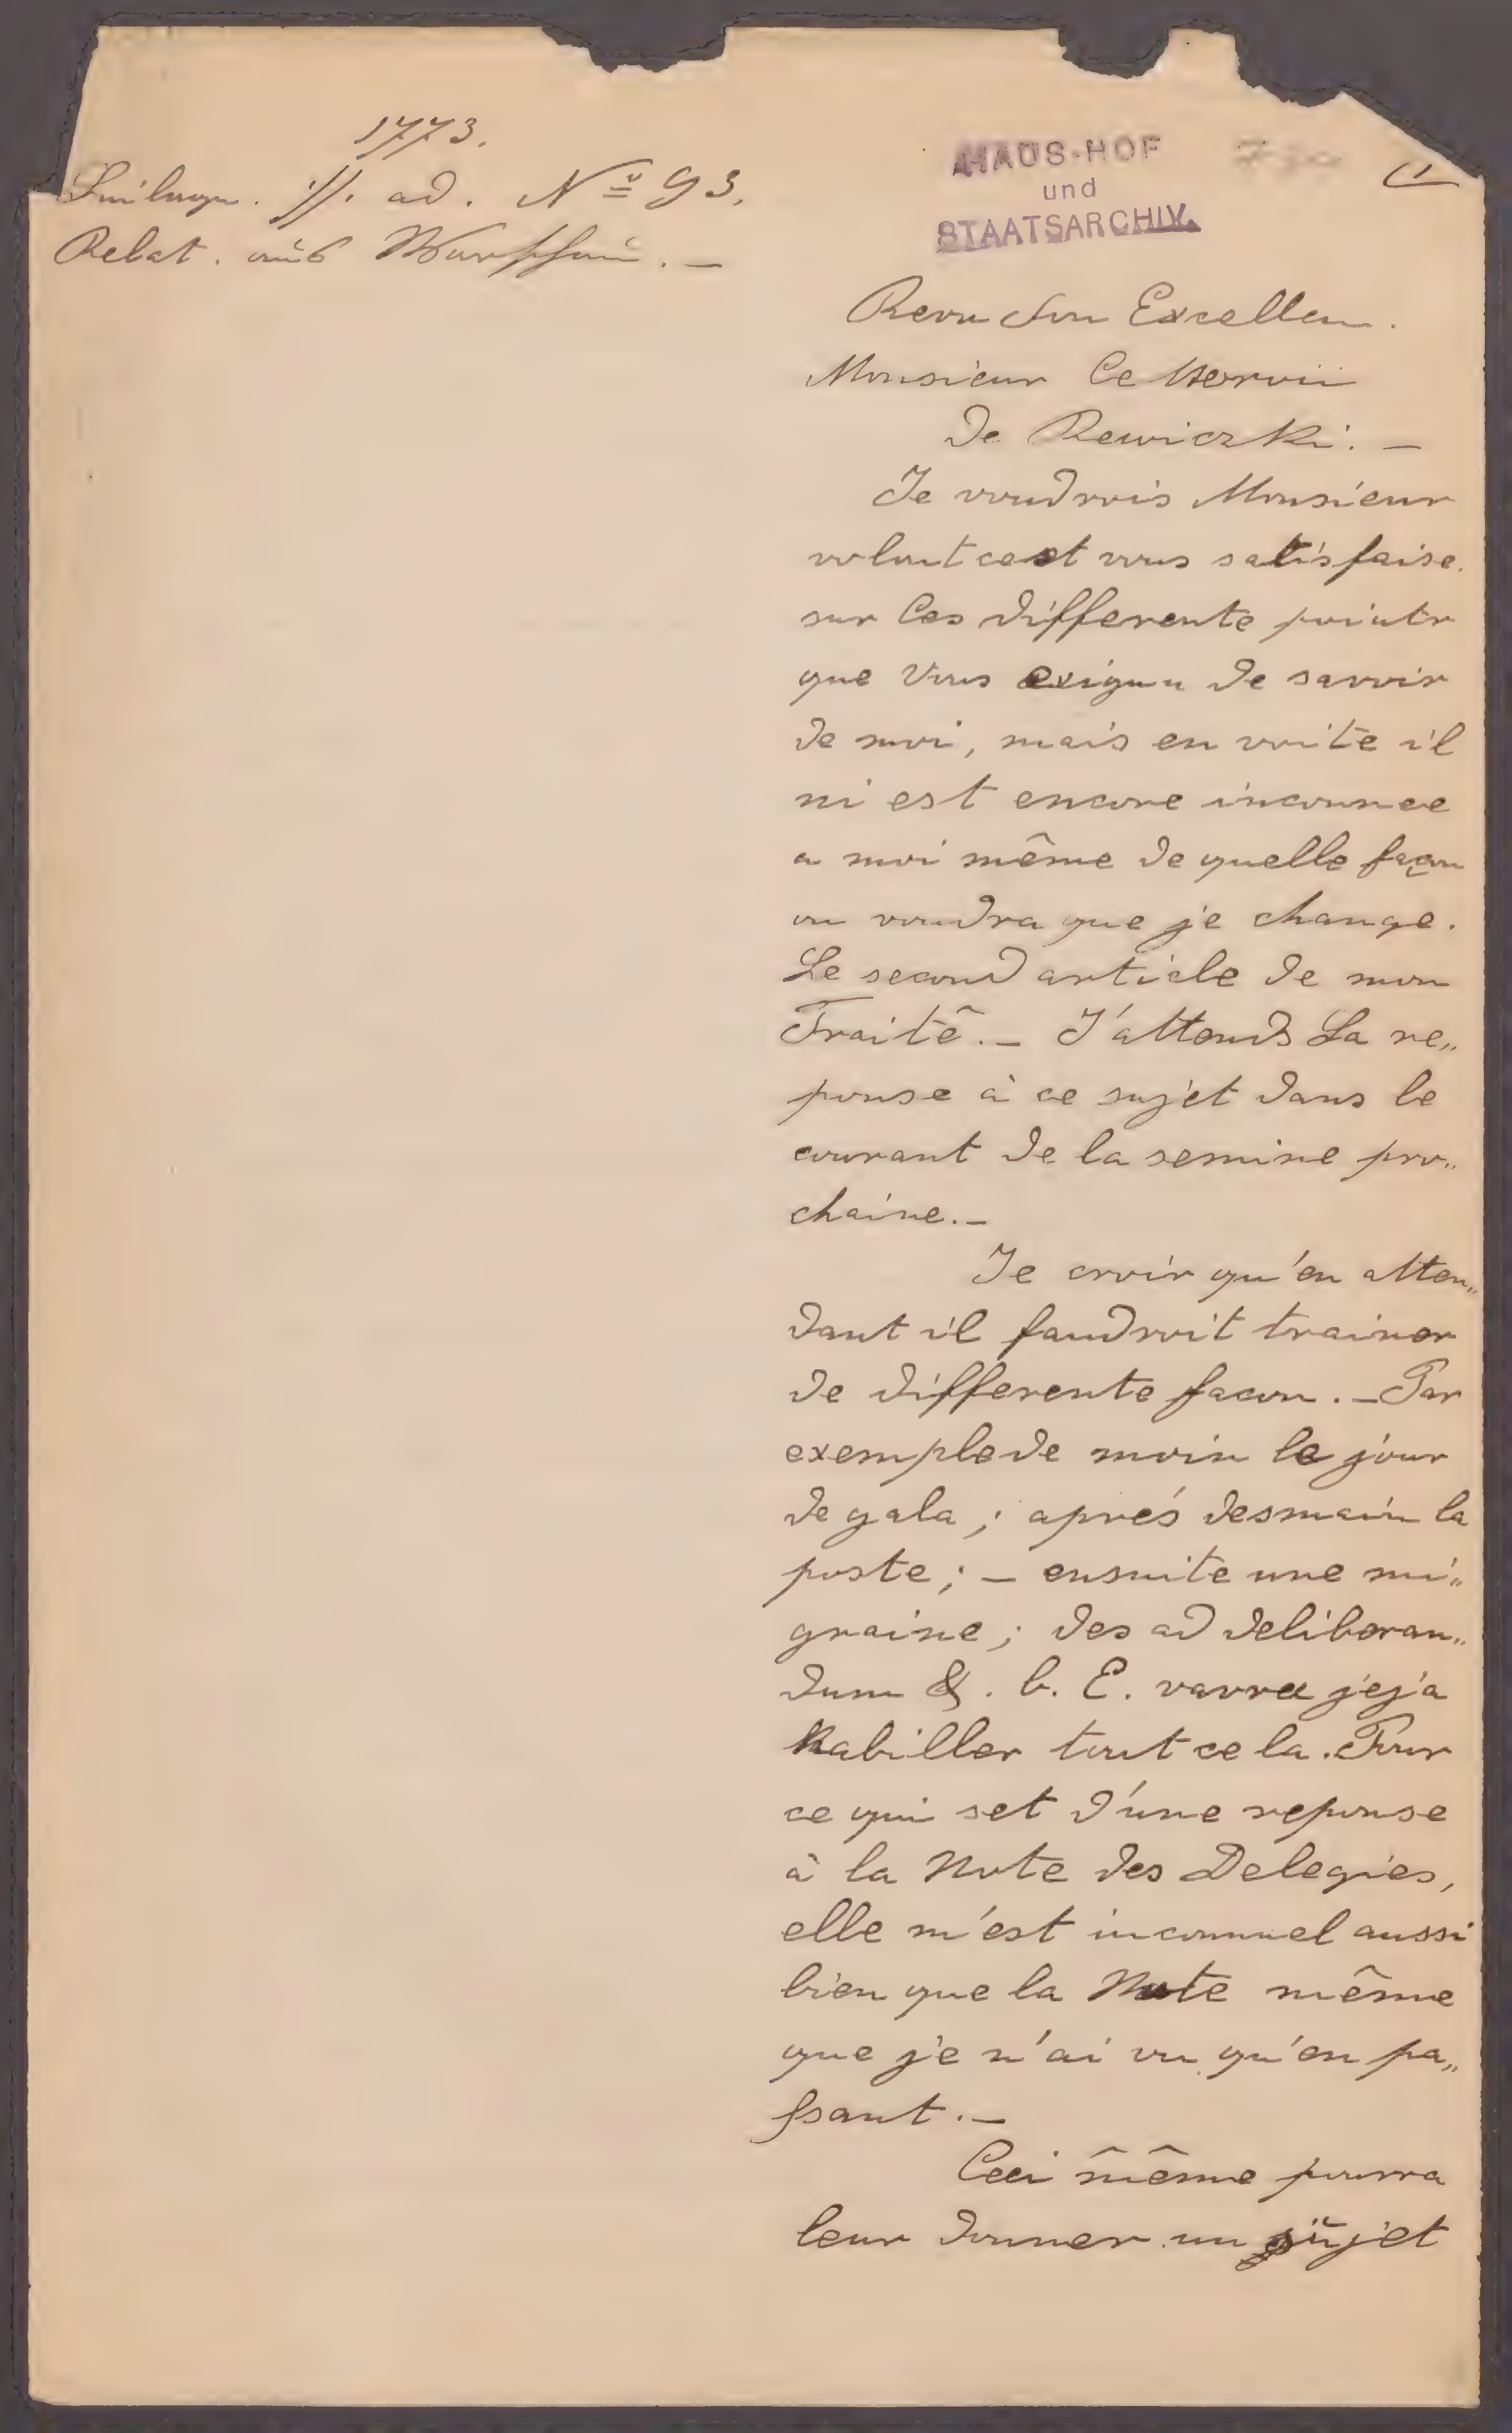 1773.
Beilage. //. ad. No 93.
Relat. aus Warschau. —
HAUS-HOF
und
STAATSARCHIV.
Son Excellen.
Monsieur Le
De Rewiczki. —
Je voudrois Monsieur
vous satisfaise.
sur Les differente points
que Vous de savoir
de moi, mais en vérité il
ni est encore inconnee
a moi même de quelle façon
on voudra que je change.
Le second article de mon
Traité. — J'attends La re„
ponse à ce sujet dans le
courant de la semine pro„
chaine. —
Je croir qu'en atten„
dant il faudroit trainer
de differente facon. — Par
exemple de moin le jour
de gala ; aprés desmain la
poste ; — ensuite une mi„
graine ; des ad deliberan„
dum &. b. E.
habiller tout ce la. Pour
ce qui set d'une reponse
à la Note des Delegies,
elle m'est inconnuel aussi
bien que la Note même
que je n'ai vu qu'en pa„
ssant. —
Ceci même pourra
leur donner un sujet